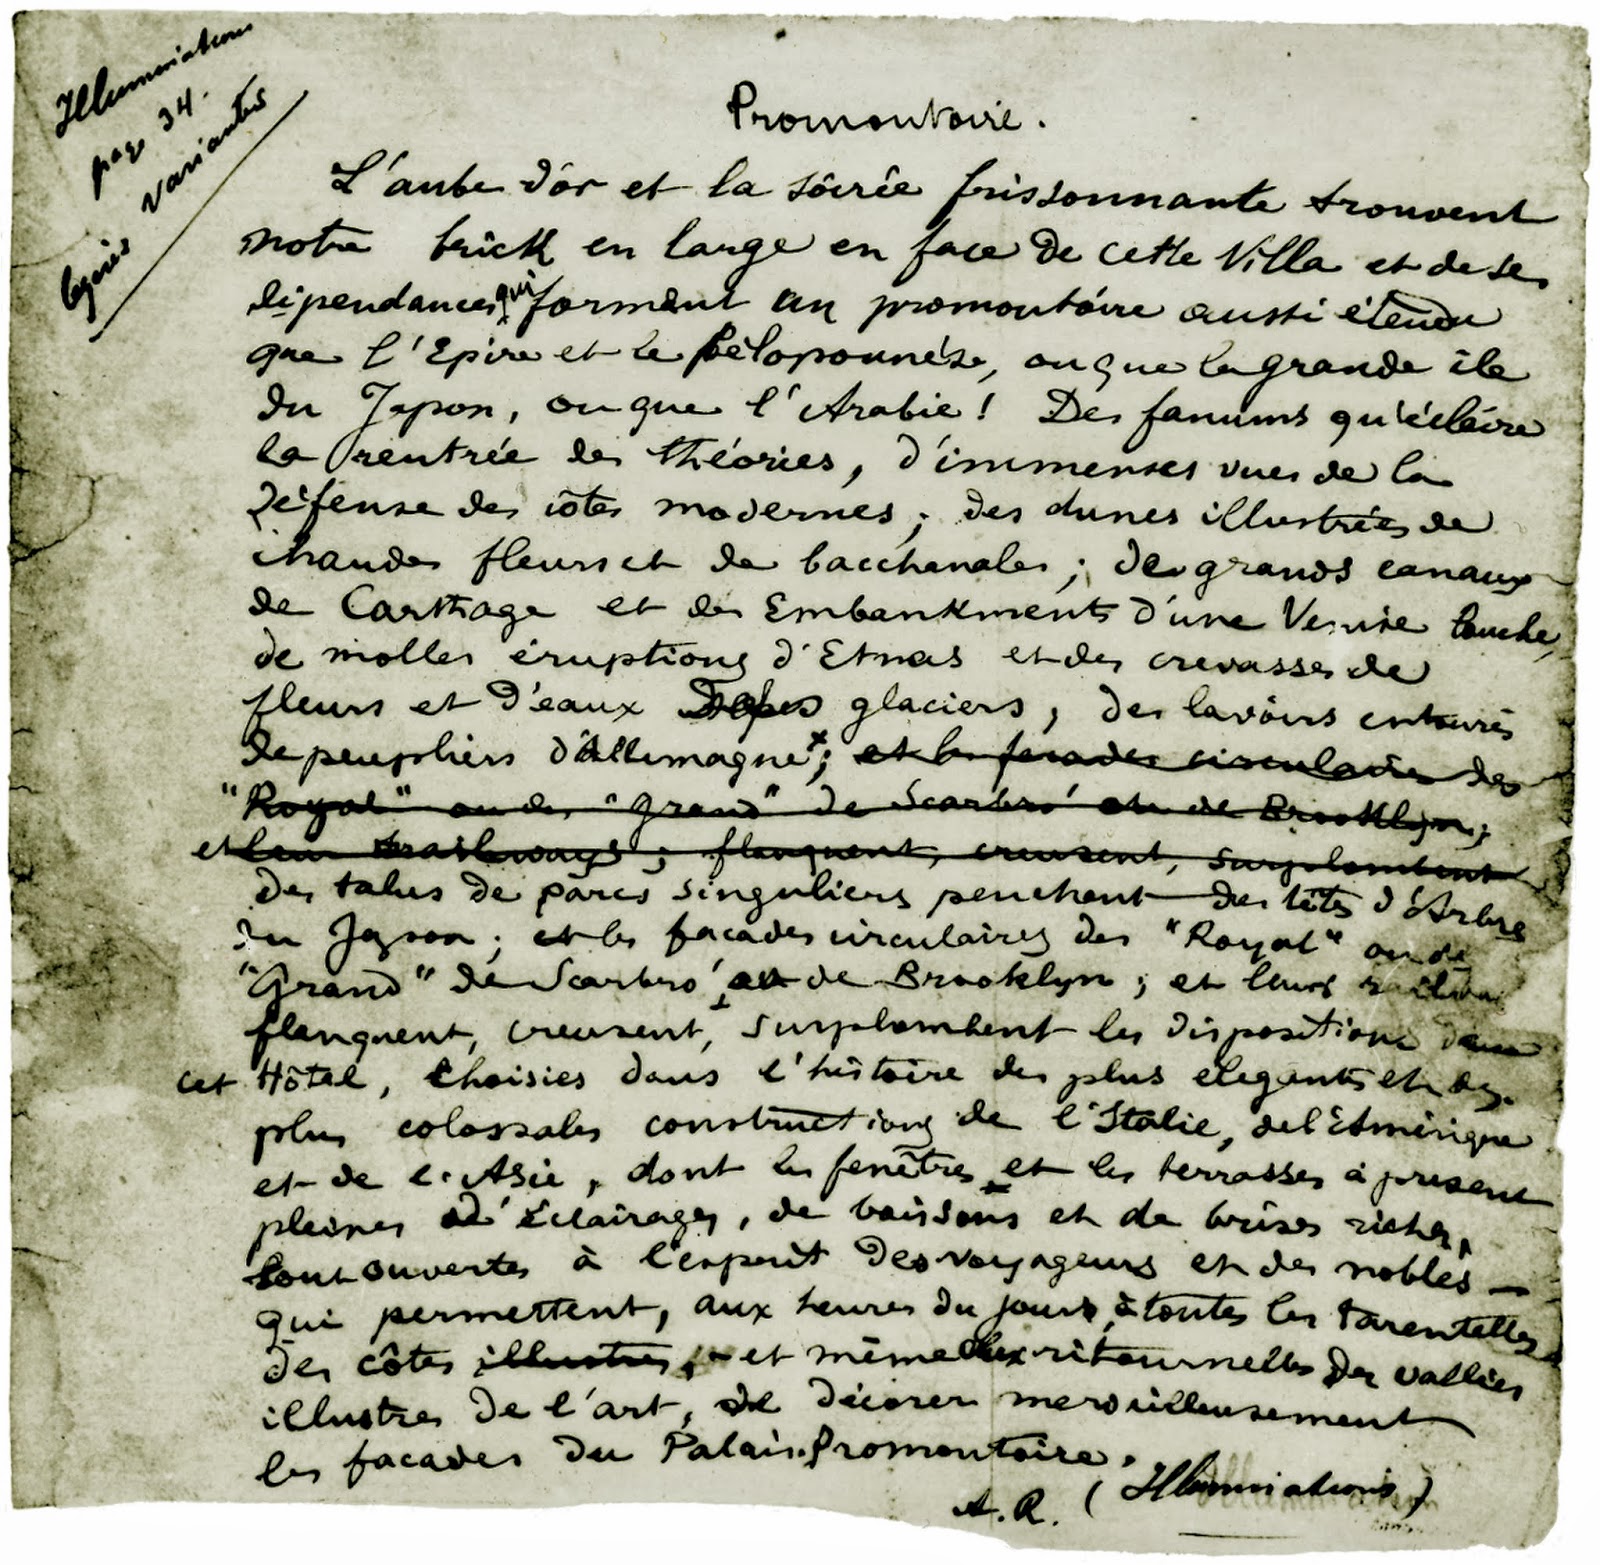 Illuminations
page 34.
légères variantes
Promontoire.
L'aube d'or et la soirée frissonnante trouvent
notre brick en large en face de cette Villa et de ses
dépendances qui forment un promontoire aussi étendu
que l'Epire et le Péloponnèse, ou que la grande île
du Japon, ou que l'Arabie! Des fanums qu'éclaire
la rentrée des théories, d'immenses vues de la
défense des côtes modernes; des dunes illustrées de
chaudes fleurs et de bacchanales; de grands canaux
de Carthage et des Embankments d'une Venise louche,
de molles éruptions d'Etnas et des crevasses de
fleurs et d'eaux des glaciers, des lavoirs entourés
de peupliers d'Allemagne; et les facades circulaires des
"Royal" ou des "Grand" de Scarbro' ou de Brooklyn;
et leurs railways; flanquent, creusent, surplombent
des talus de parcs singuliers penchent des têtes d'Arbre
du Japon; et les facades circulaires des "Royal" ou de
"Grand" de Scarbro' ou de Brooklyn; et leurs railways
flanquent, creusent, surplombent les dispositions dans
cet Hôtel, choisies dans l'histoire des plus elegants et des
plus colossales constructions de l'Italie, de l'Amérique
et de l'Asie, dont les fenêtres et les terrasses à présent
pleines d'éclairages, de boissons et de brises riches,
sont ouvertes à l'esprit des voyageurs et des nobles —
qui permettent, aux heures du jour, à toutes les tarentelles
des côtes illustres, et même aux ritournelles des vallées
illustres de l'art, de décorer merveilleusement
les facades du Palais. Promontoire.
A. R. (Illuminations)